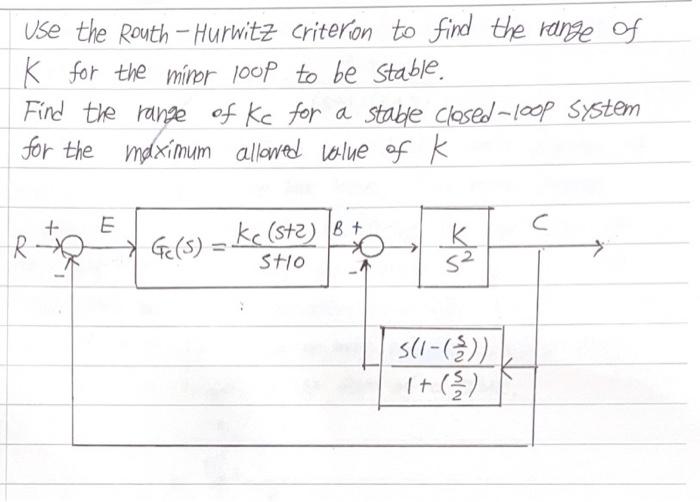 Use the Routh-Hurwitz criterion to find the range of
K for the minor loop to be stable.
Find the range of Kc for a stable closed-loop system
for the maximum allowed value of K
R + - E Gc(s) = kc(s+2)/s+10 B + - K/s² C
s(1-(s/2))/1+(s/2)